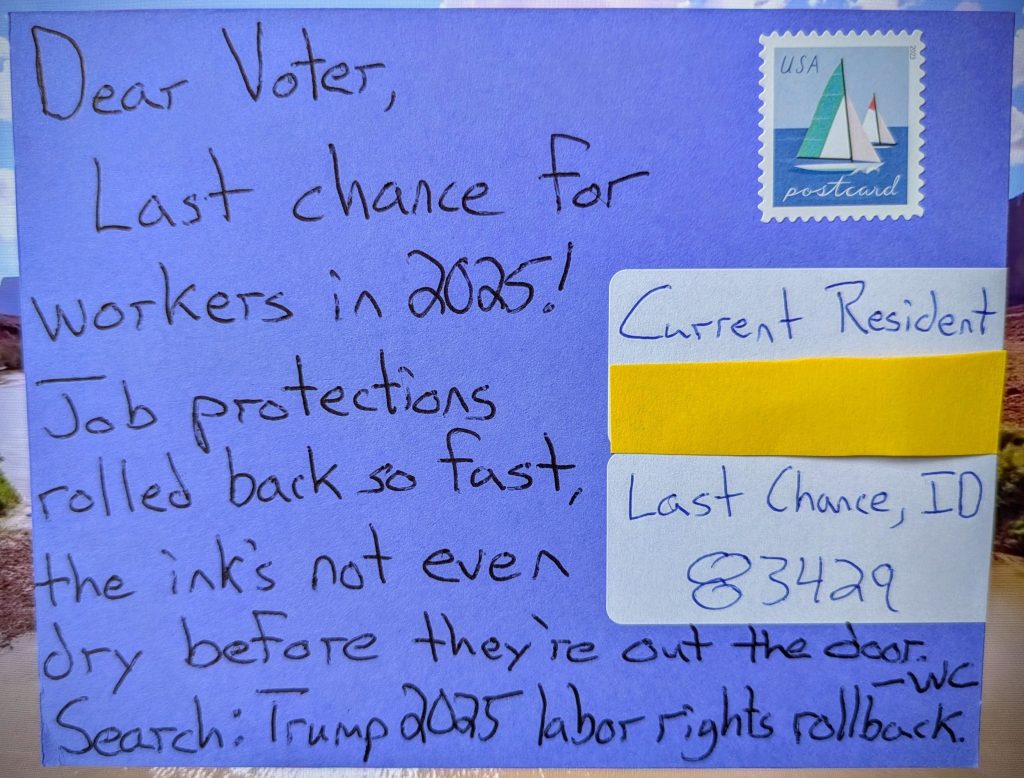 Dear Voter,
Last chance for
workers in 2025!
Job protections
rolled back so fast,
the ink's not even
dry before they're out the door.
-WC
Search: Trump 2025 labor rights rollback.
USA
2023
postcard
Current Resident
Last Chance, ID
83429